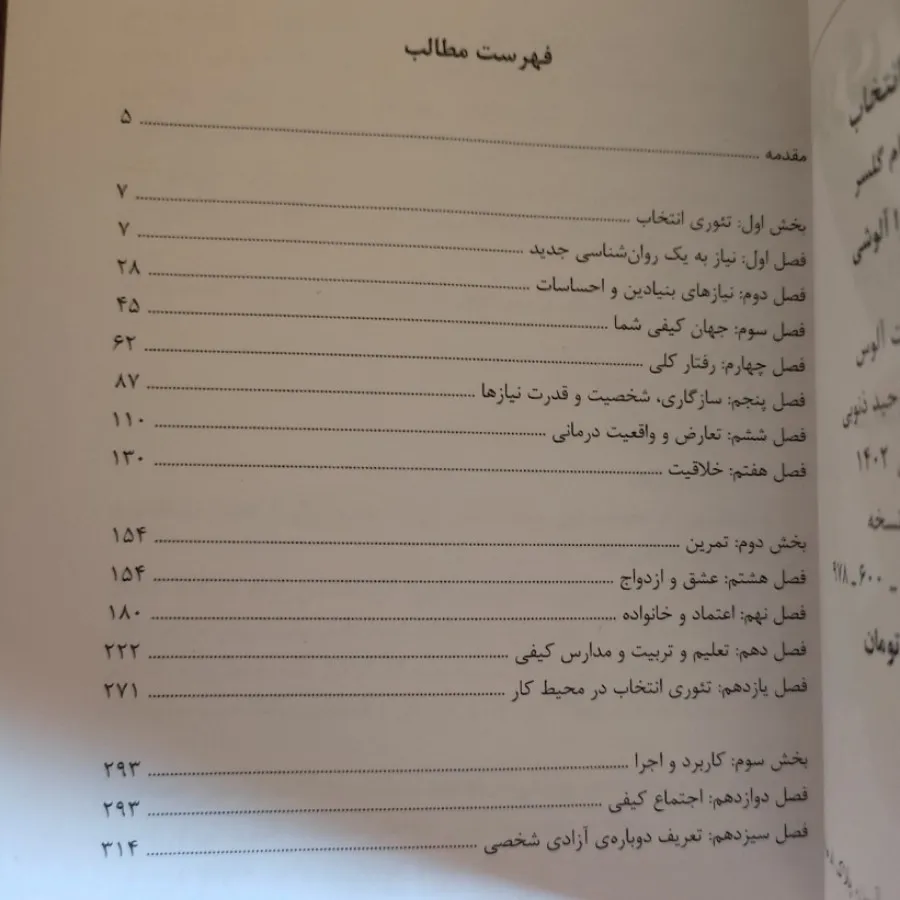 فهرست مطالب
مقدمه ........ ۵
بخش اول: تئوری انتخاب ........ ۷
فصل اول: نیاز به یک روان‌شناسی جدید ........ ۷
فصل دوم: نیازهای بنیادین و احساسات ........ ۲۸
فصل سوم: جهان کیفی شما ........ ۴۵
فصل چهارم: رفتار کلی ........ ۶۲
فصل پنجم: سازگاری، شخصیت و قدرت نیازها ........ ۸۷
فصل ششم: تعارض و واقعیت درمانی ........ ۱۱۰
فصل هفتم: خلاقیت ........ ۱۳۰
بخش دوم: تمرین ........ ۱۵۴
فصل هشتم: عشق و ازدواج ........ ۱۵۴
فصل نهم: اعتماد و خانواده ........ ۱۸۰
فصل دهم: تعلیم و تربیت و مدارس کیفی ........ ۲۲۲
فصل یازدهم: تئوری انتخاب در محیط کار ........ ۲۷۱
بخش سوم: کاربرد و اجرا ........ ۲۹۳
فصل دوازدهم: اجتماع کیفی ........ ۲۹۳
فصل سیزدهم: تعریف دوباره‌ی آزادی شخصی ........ ۳۱۴
انتخاب
گلسر
آلوشی
آلوس
۱۴۰۲
نسخه
۹۷۸ ـ ۶۰۰ ـ
تومان